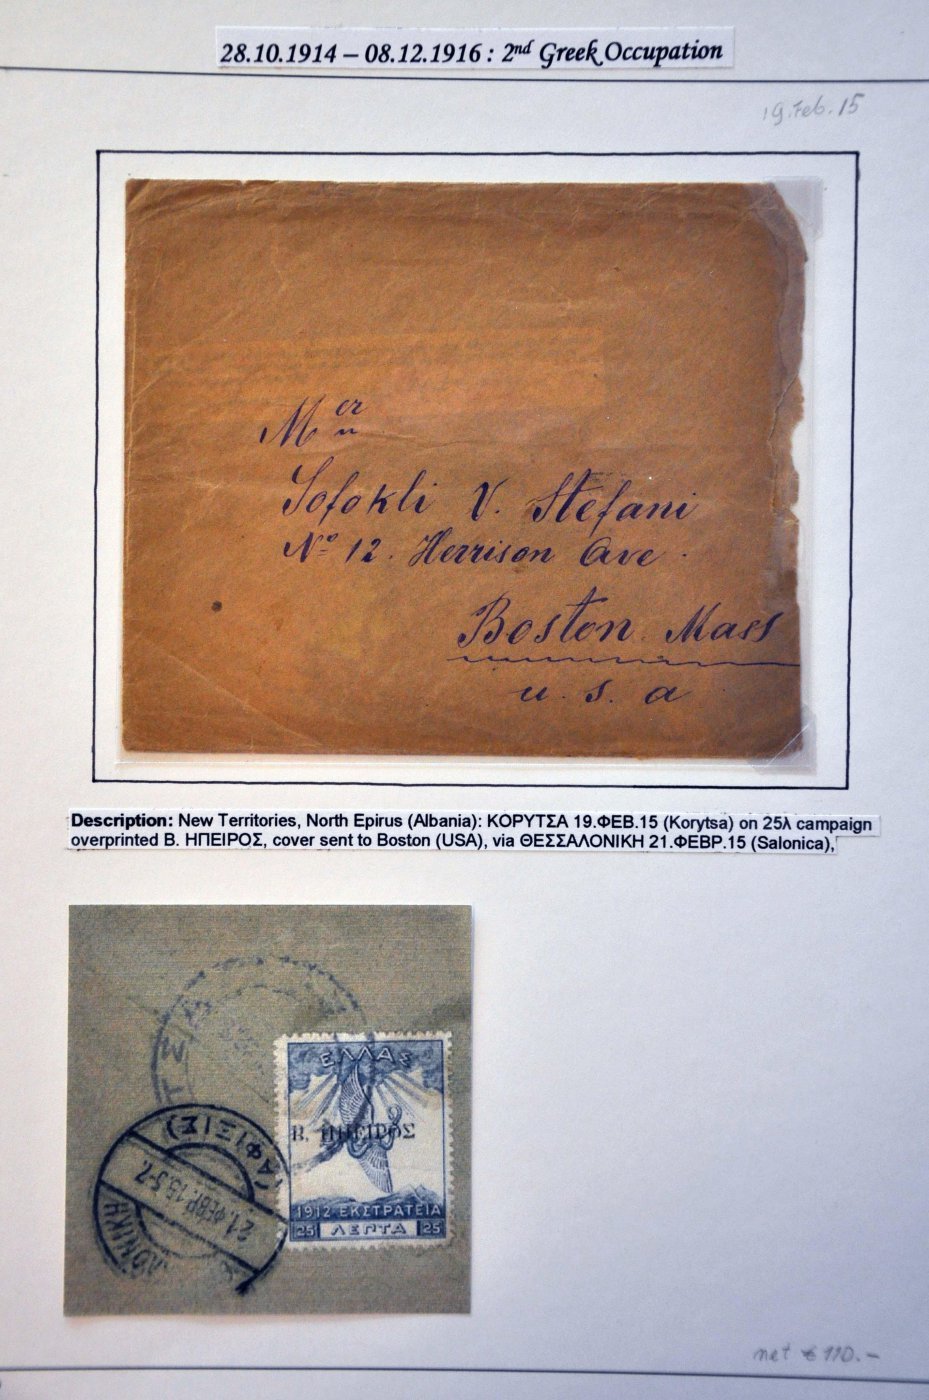 28.10.1914 – 08.12.1916 : 2nd Greek Occupation
19.Feb.15
Mer
Sofokli V. Stefani
No 12. Herrison Ave.
Boston Mass
u. s. a
Description: New Territories, North Epirus (Albania): ΚΟΡΥΤΣΑ 19.ΦΕΒ.15 (Korytsa) on 25λ campaign
overprinted Β. ΗΠΕΙΡΟΣ, cover sent to Boston (USA), via ΘΕΣΣΑΛΟΝΙΚΗ 21.ΦΕΒΡ.15 (Salonica),
ΤΣΑ
ΕΛΛΑΣ
Β. ΗΠΕΙΡΟΣ
1912 ΕΚΣΤΡΑΤΕΙΑ
25 ΛΕΠΤΑ 25
(ΑΦΙΞΙΣ)
21.ΦΕΒΡ.15.5-7.
ΛΟΝΙΚΗ
net € 110.-